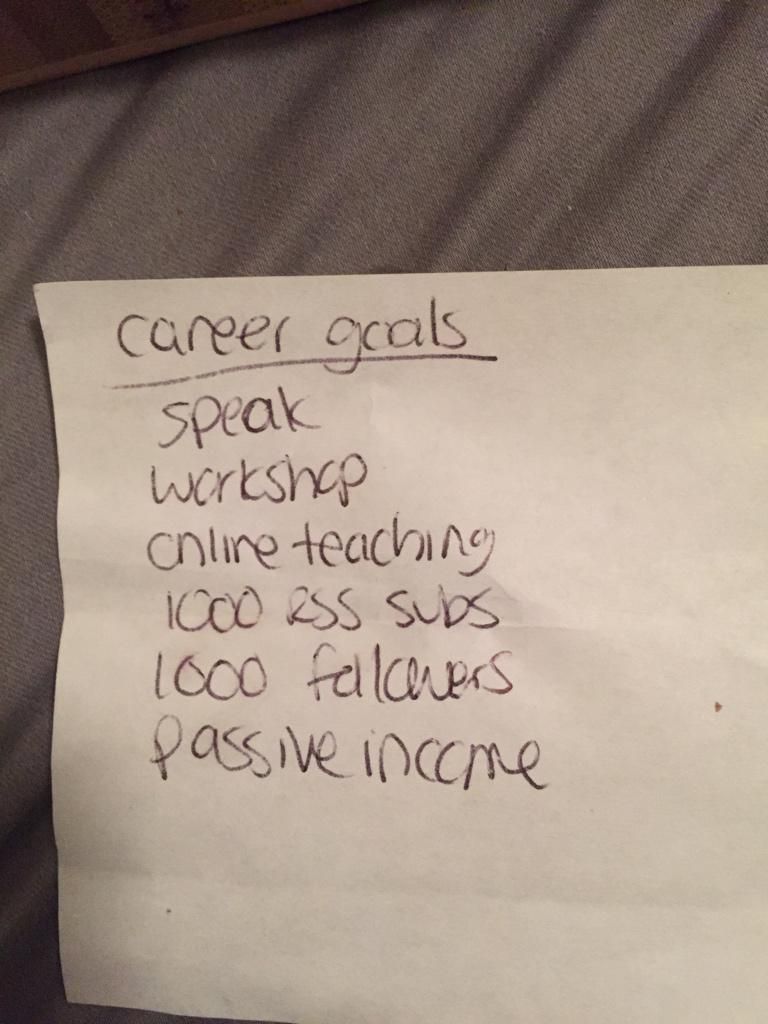 career goals
speak
workshop
online teaching
1000 RSS subs
1000 followers
passive income